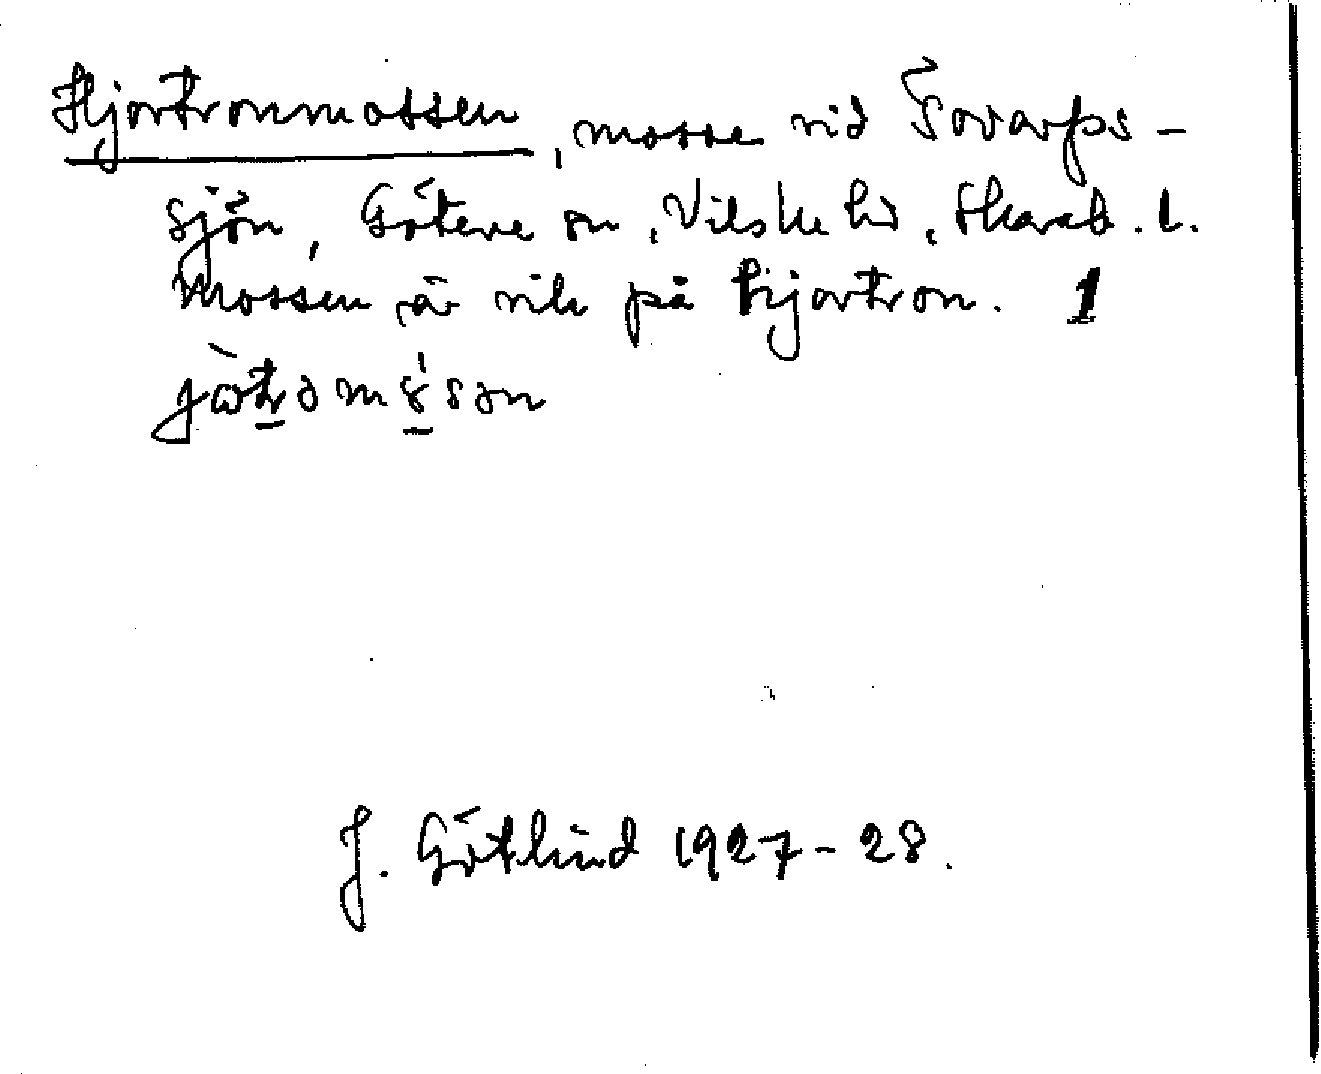 Hjortronmossen, mosse vid Sovarps-
sjön, Götene sn, Vilske hd, Skarab. l.
Mossen är rik på hjortron. 1
J. Götlind 1927-28.